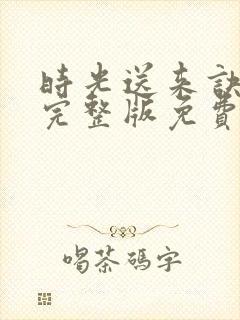 時光送来訣
完整版免費
喝茶碼字